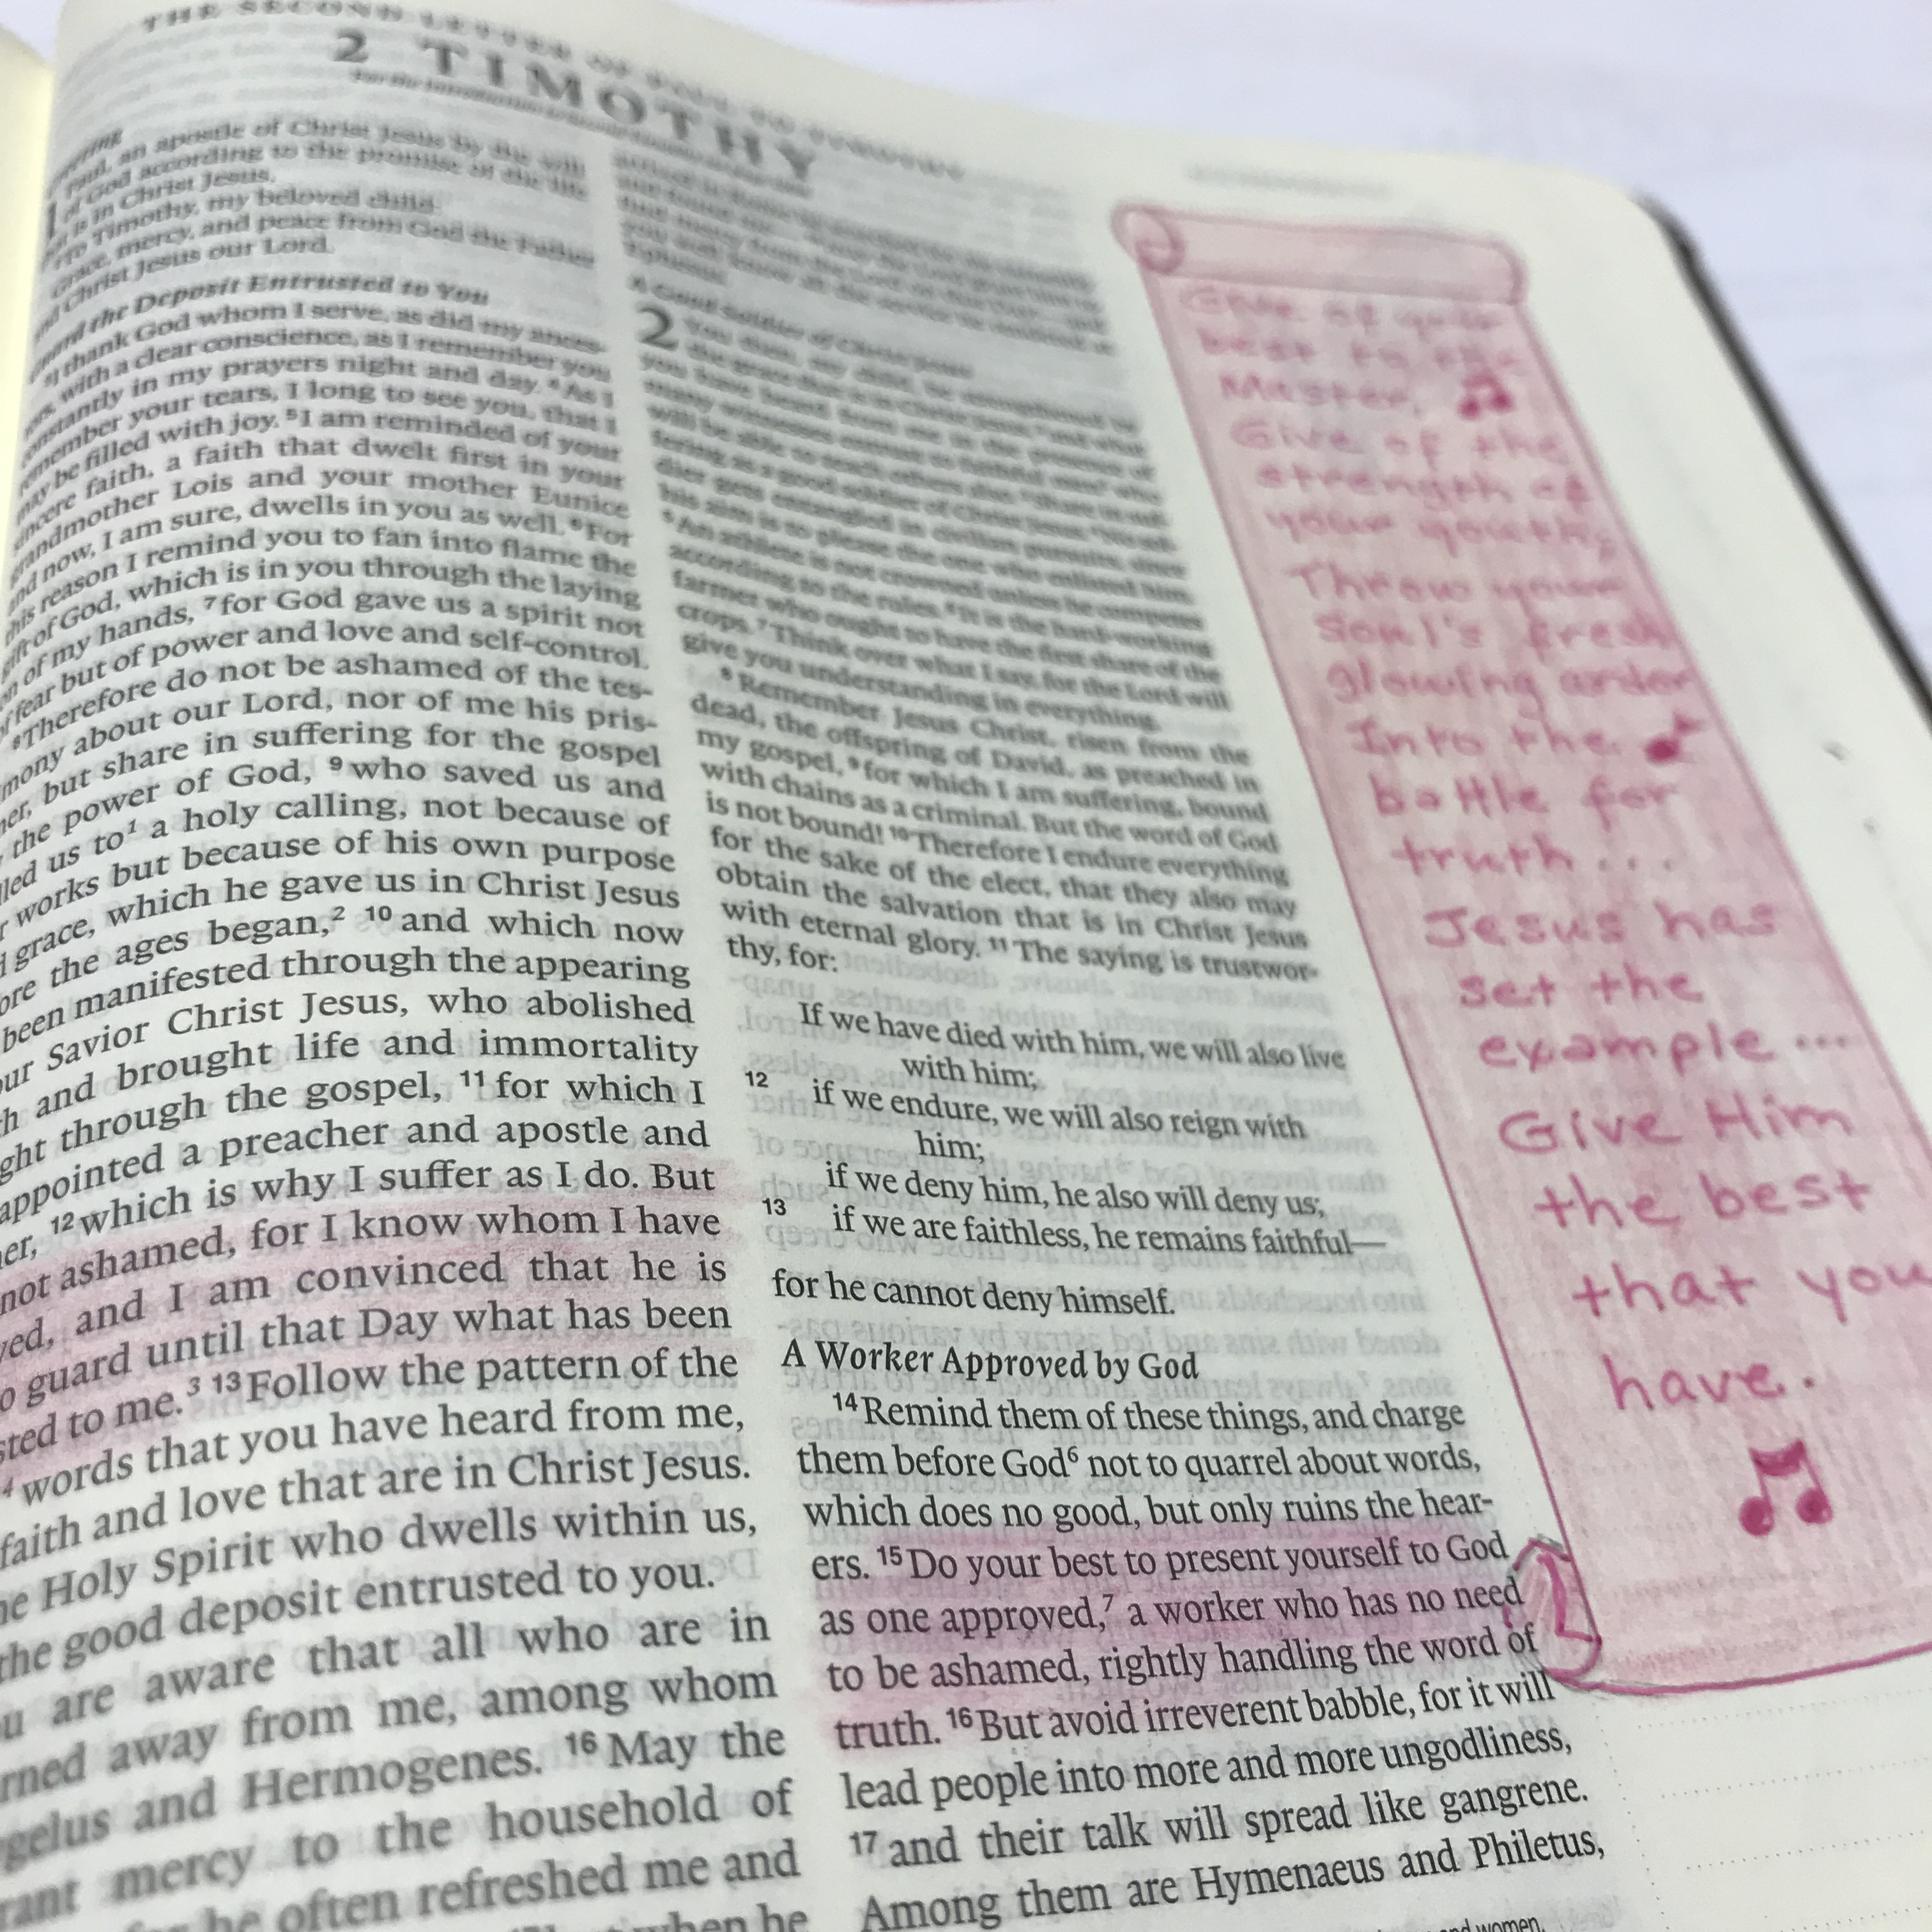 THE SECOND LETTER OF PAUL TO TIMOTHY
2 TIMOTHY
Paul, an apostle of Christ Jesus by the will
of God according to the promise of the life
is in Christ Jesus,
Timothy, my beloved child:
Grace, mercy, and peace from God the Father
and Christ Jesus our Lord.
the Deposit Entrusted to You
thank God whom I serve, as did my ances-
with a clear conscience, as I remember you
constantly in my prayers night and day. 4 As I
remember your tears, I long to see you, that I
may be filled with joy. 5 I am reminded of your
sincere faith, a faith that dwelt first in your
grandmother Lois and your mother Eunice
and now, I am sure, dwells in you as well. 6 For
this reason I remind you to fan into flame the
gift of God, which is in you through the laying
on of my hands, 7 for God gave us a spirit not
of fear but of power and love and self-control.
8 Therefore do not be ashamed of the tes-
mony about our Lord, nor of me his pris-
ner, but share in suffering for the gospel
the power of God, 9 who saved us and
lled us to1 a holy calling, not because of
works but because of his own purpose
grace, which he gave us in Christ Jesus
ore the ages began,2 10 and which now
been manifested through the appearing
ur Savior Christ Jesus, who abolished
h and brought life and immortality
ght through the gospel, 11 for which I
appointed a preacher and apostle and
er, 12 which is why I suffer as I do. But
not ashamed, for I know whom I have
ved, and I am convinced that he is
o guard until that Day what has been
sted to me.3 13 Follow the pattern of the
words that you have heard from me,
faith and love that are in Christ Jesus.
he Holy Spirit who dwells within us,
the good deposit entrusted to you.
u are aware that all who are in
rned away from me, among whom
gelus and Hermogenes. 16 May the
rant mercy to the household of
he often refreshed me and
when he
A Good Soldier of Christ Jesus
2 You then, my child, be strengthened by
his aim is to please the one who enlisted him.
5 An athlete is not crowned unless he competes
according to the rules. 6 It is the hard-working
farmer who ought to have the first share of the
crops. 7 Think over what I say, for the Lord will
give you understanding in everything.
8 Remember Jesus Christ, risen from the
dead, the offspring of David, as preached in
my gospel, 9 for which I am suffering, bound
with chains as a criminal. But the word of God
is not bound! 10 Therefore I endure everything
for the sake of the elect, that they also may
obtain the salvation that is in Christ Jesus
with eternal glory. 11 The saying is trustwor-
thy, for:
If we have died with him, we will also live
with him;
12 if we endure, we will also reign with
him;
if we deny him, he also will deny us;
13 if we are faithless, he remains faithful—
for he cannot deny himself.
A Worker Approved by God
14 Remind them of these things, and charge
them before God6 not to quarrel about words,
which does no good, but only ruins the hear-
ers. 15 Do your best to present yourself to God
as one approved,7 a worker who has no need
to be ashamed, rightly handling the word of
truth. 16 But avoid irreverent babble, for it will
lead people into more and more ungodliness,
17 and their talk will spread like gangrene.
Among them are Hymenaeus and Philetus,
and women.
Give of your
best to the
Master,
Give of the
strength of
your youth,
Throw your
soul's fresh
glowing ardor
Into the
battle for
truth...
Jesus has
set the
example...
Give Him
the best
that you
have.